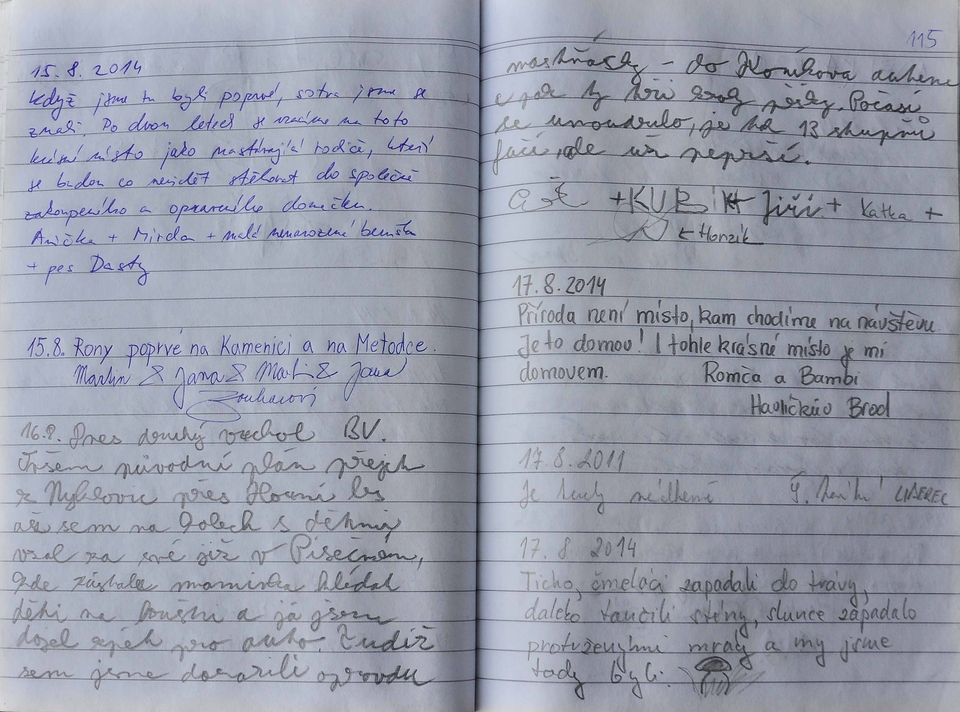 15. 8. 2014
Když jsme tu byli poprvé, sotva jsme se
znali. Po dvou letech se vracíme na toto
krásné místo jako nastávající rodiče, kteří
se budou co nevidět stěhovat do společně
zakoupeného a opraveného domečku.
Anička + Mirda + malé nenarozené
+ pes Dasty
15.8. Rony poprvé na Kamenici a na Metodce.
Martin & Jana & Marti & Jana
16.8. Dnes druhý vrchol BV.
původní plán přejet
z přes Horní les
až sem na kolech s dětmi
vzal za své již v Písečném,
kde zůstala maminka hlídat
děti na a já jsem
dojel zpět pro auto. Tudíž
sem jsme dorazili opravdu
115
– do autem
Počasí
se umoudřilo, je 13 stupňů
fučí, ale už neprší.
+ KUBÍK + Jiří + Katka +
← Honzík
17.8.2014
Příroda není místo, kam chodíme na návštěvu
Je to domov! I tohle krásné místo je mi
domovem. Romča a Bambi
Havlíčkův Brod
17.8.2011
Je tady nádherně LIBEREC
17. 8 2014
Ticho, čmeláci zapadali do trávy,
daleko tančili stíny, slunce zapadalo
mraky a my jsme
tady byli.